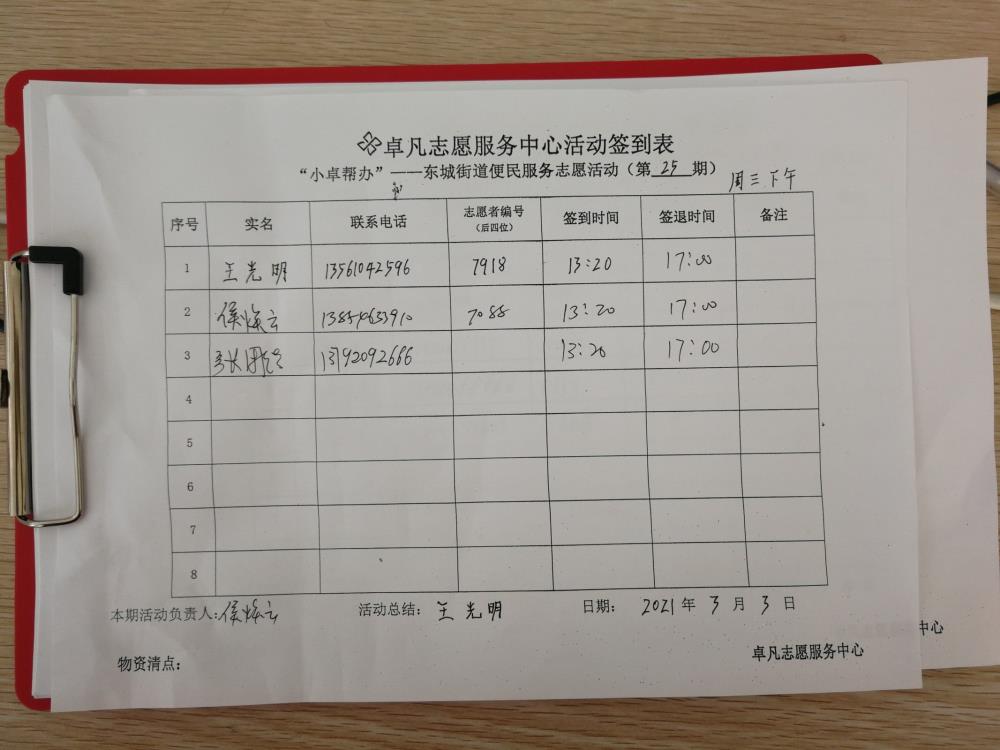 卓凡志愿服务中心活动签到表
“小卓帮办”——东城街道便民服务志愿活动（第 25 期）
周三下午
序号 实名 联系电话 志愿者编号（后四位） 签到时间 签退时间 备注
1 王光明 13561042596 7918 13:20 17:00
2 侯焕云 13854633910 7088 13:20 17:00
3 13792092666 13:20 17:00
4
5
6
7
8
本期活动负责人：侯焕云 活动总结：王光明 日期：2021年3月3日
物资清点： 卓凡志愿服务中心
中心